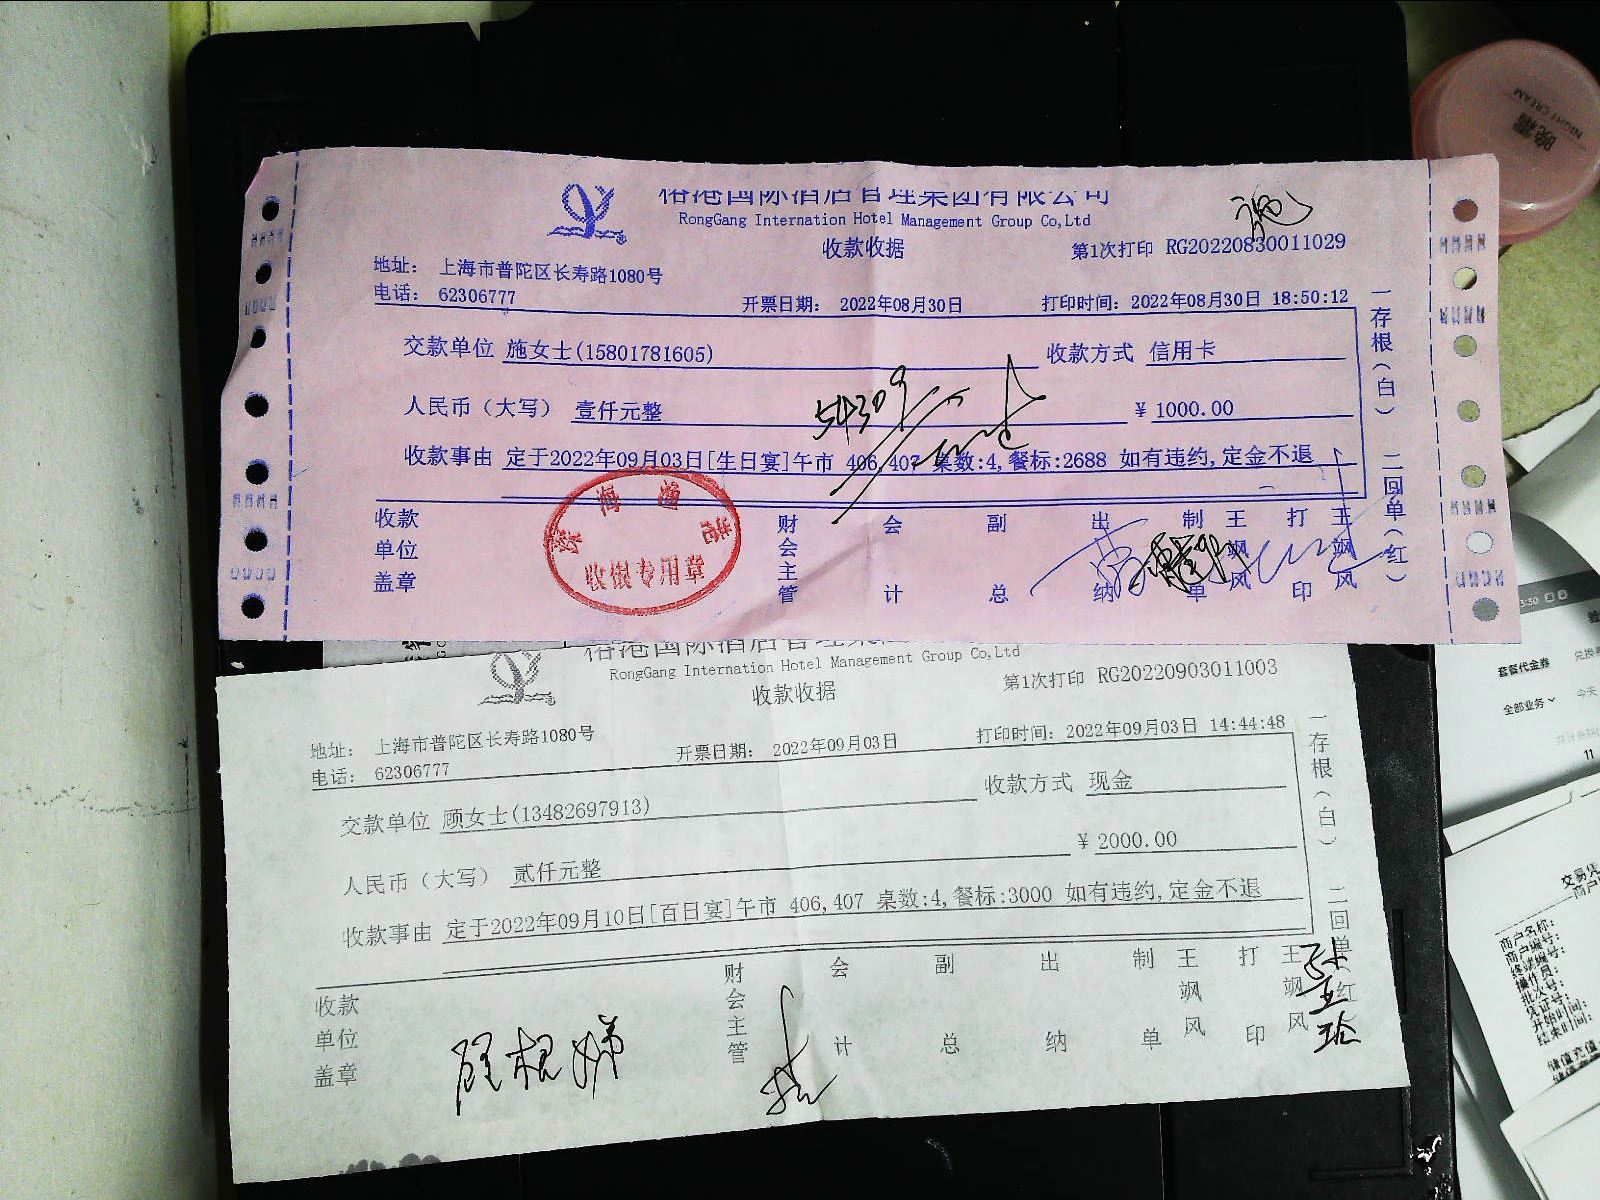 榕港国际酒店管理集团有限公司
RongGang Internation Hotel Management Group Co,Ltd
收款收据
第1次打印 RG20220830011029
地址: 上海市普陀区长寿路1080号
电话: 62306777
开票日期: 2022年08月30日
打印时间: 2022年08月30日 18:50:12
交款单位 施女士(15801781605)
收款方式 信用卡
人民币（大写） 壹仟元整
54309
￥ 1000.00
收款事由 定于2022年09月03日[生日宴]午市 406,407 桌数:4,餐标:2688 如有违约,定金不退
收款单位盖章
收银专用章
财会主管
会计
副总
出纳
制单
王飒风
打印
王飒风
一存根（白） 二回单（红）
RongGang Internation Hotel Management Group Co,Ltd
收款收据
第1次打印 RG20220903011003
地址: 上海市普陀区长寿路1080号
电话: 62306777
开票日期: 2022年09月03日
打印时间: 2022年09月03日 14:44:48
交款单位 顾女士(13482697913)
收款方式 现金
人民币（大写） 贰仟元整
￥ 2000.00
收款事由 定于2022年09月10日[百日宴]午市 406,407 桌数:4,餐标:3000 如有违约,定金不退
收款单位盖章
财会主管
会计
副总
出纳
制单
王飒风
打印
王飒风
一存根（白） 二回单（红
晚霜
NIGHT CREAM
3:30
套餐代金券
兑换
全部业务
今天
11
交易凭
商户名称:
商户编号:
终端编号:
操作员:
批次号:
凭证号:
开始时间:
结束时间:
储值充值